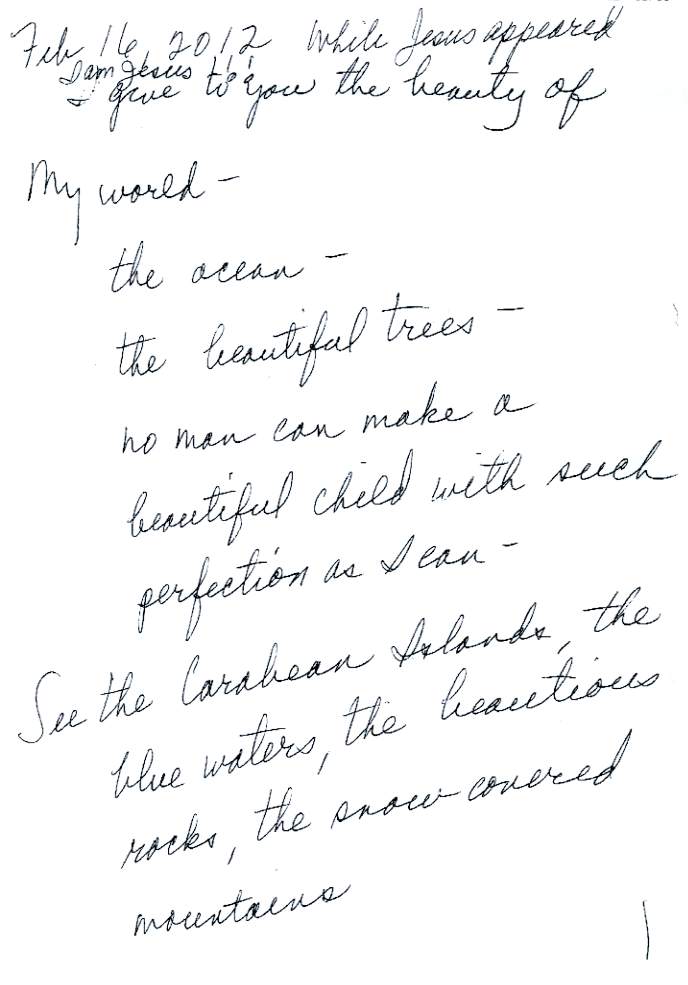 Feb 16, 2012 While Jesus appeared
I am Jesus !!!
I give to you the beauty of
My world -
the ocean -
the beautiful trees -
no man can make a
beautiful child with such
perfection as I can -
See the Carabean Islands, the
blue waters, the beautious
rocks, the snow covered
mountains
1